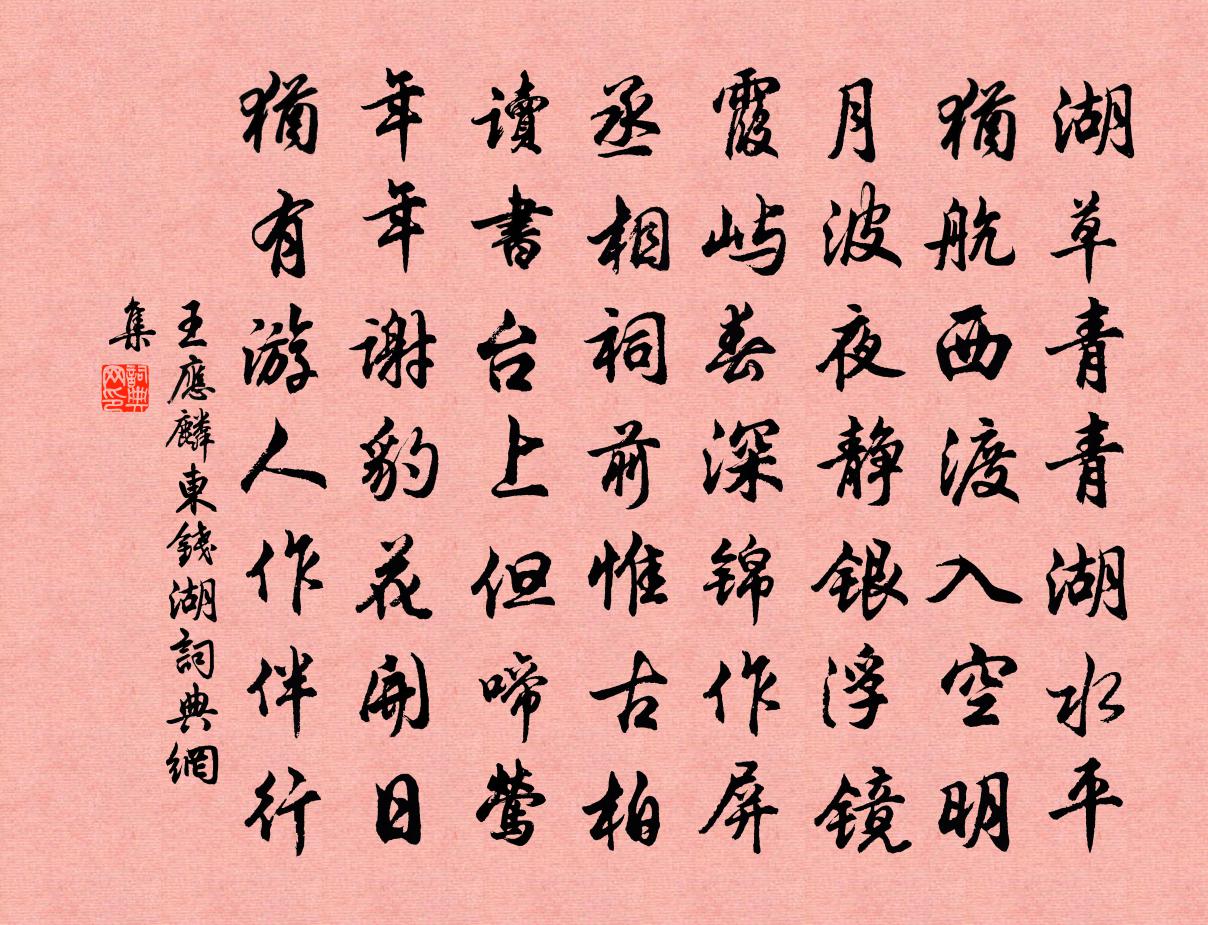 湖草青青湖水平
犹航西渡入空明
月波夜静银浮镜
霞屿春深锦作屏
丞相祠前惟古柏
读書台上但啼莺
年年谢豹花開日
猶有游人作伴行
王應麟東錢湖詞典網
集
詞典網印